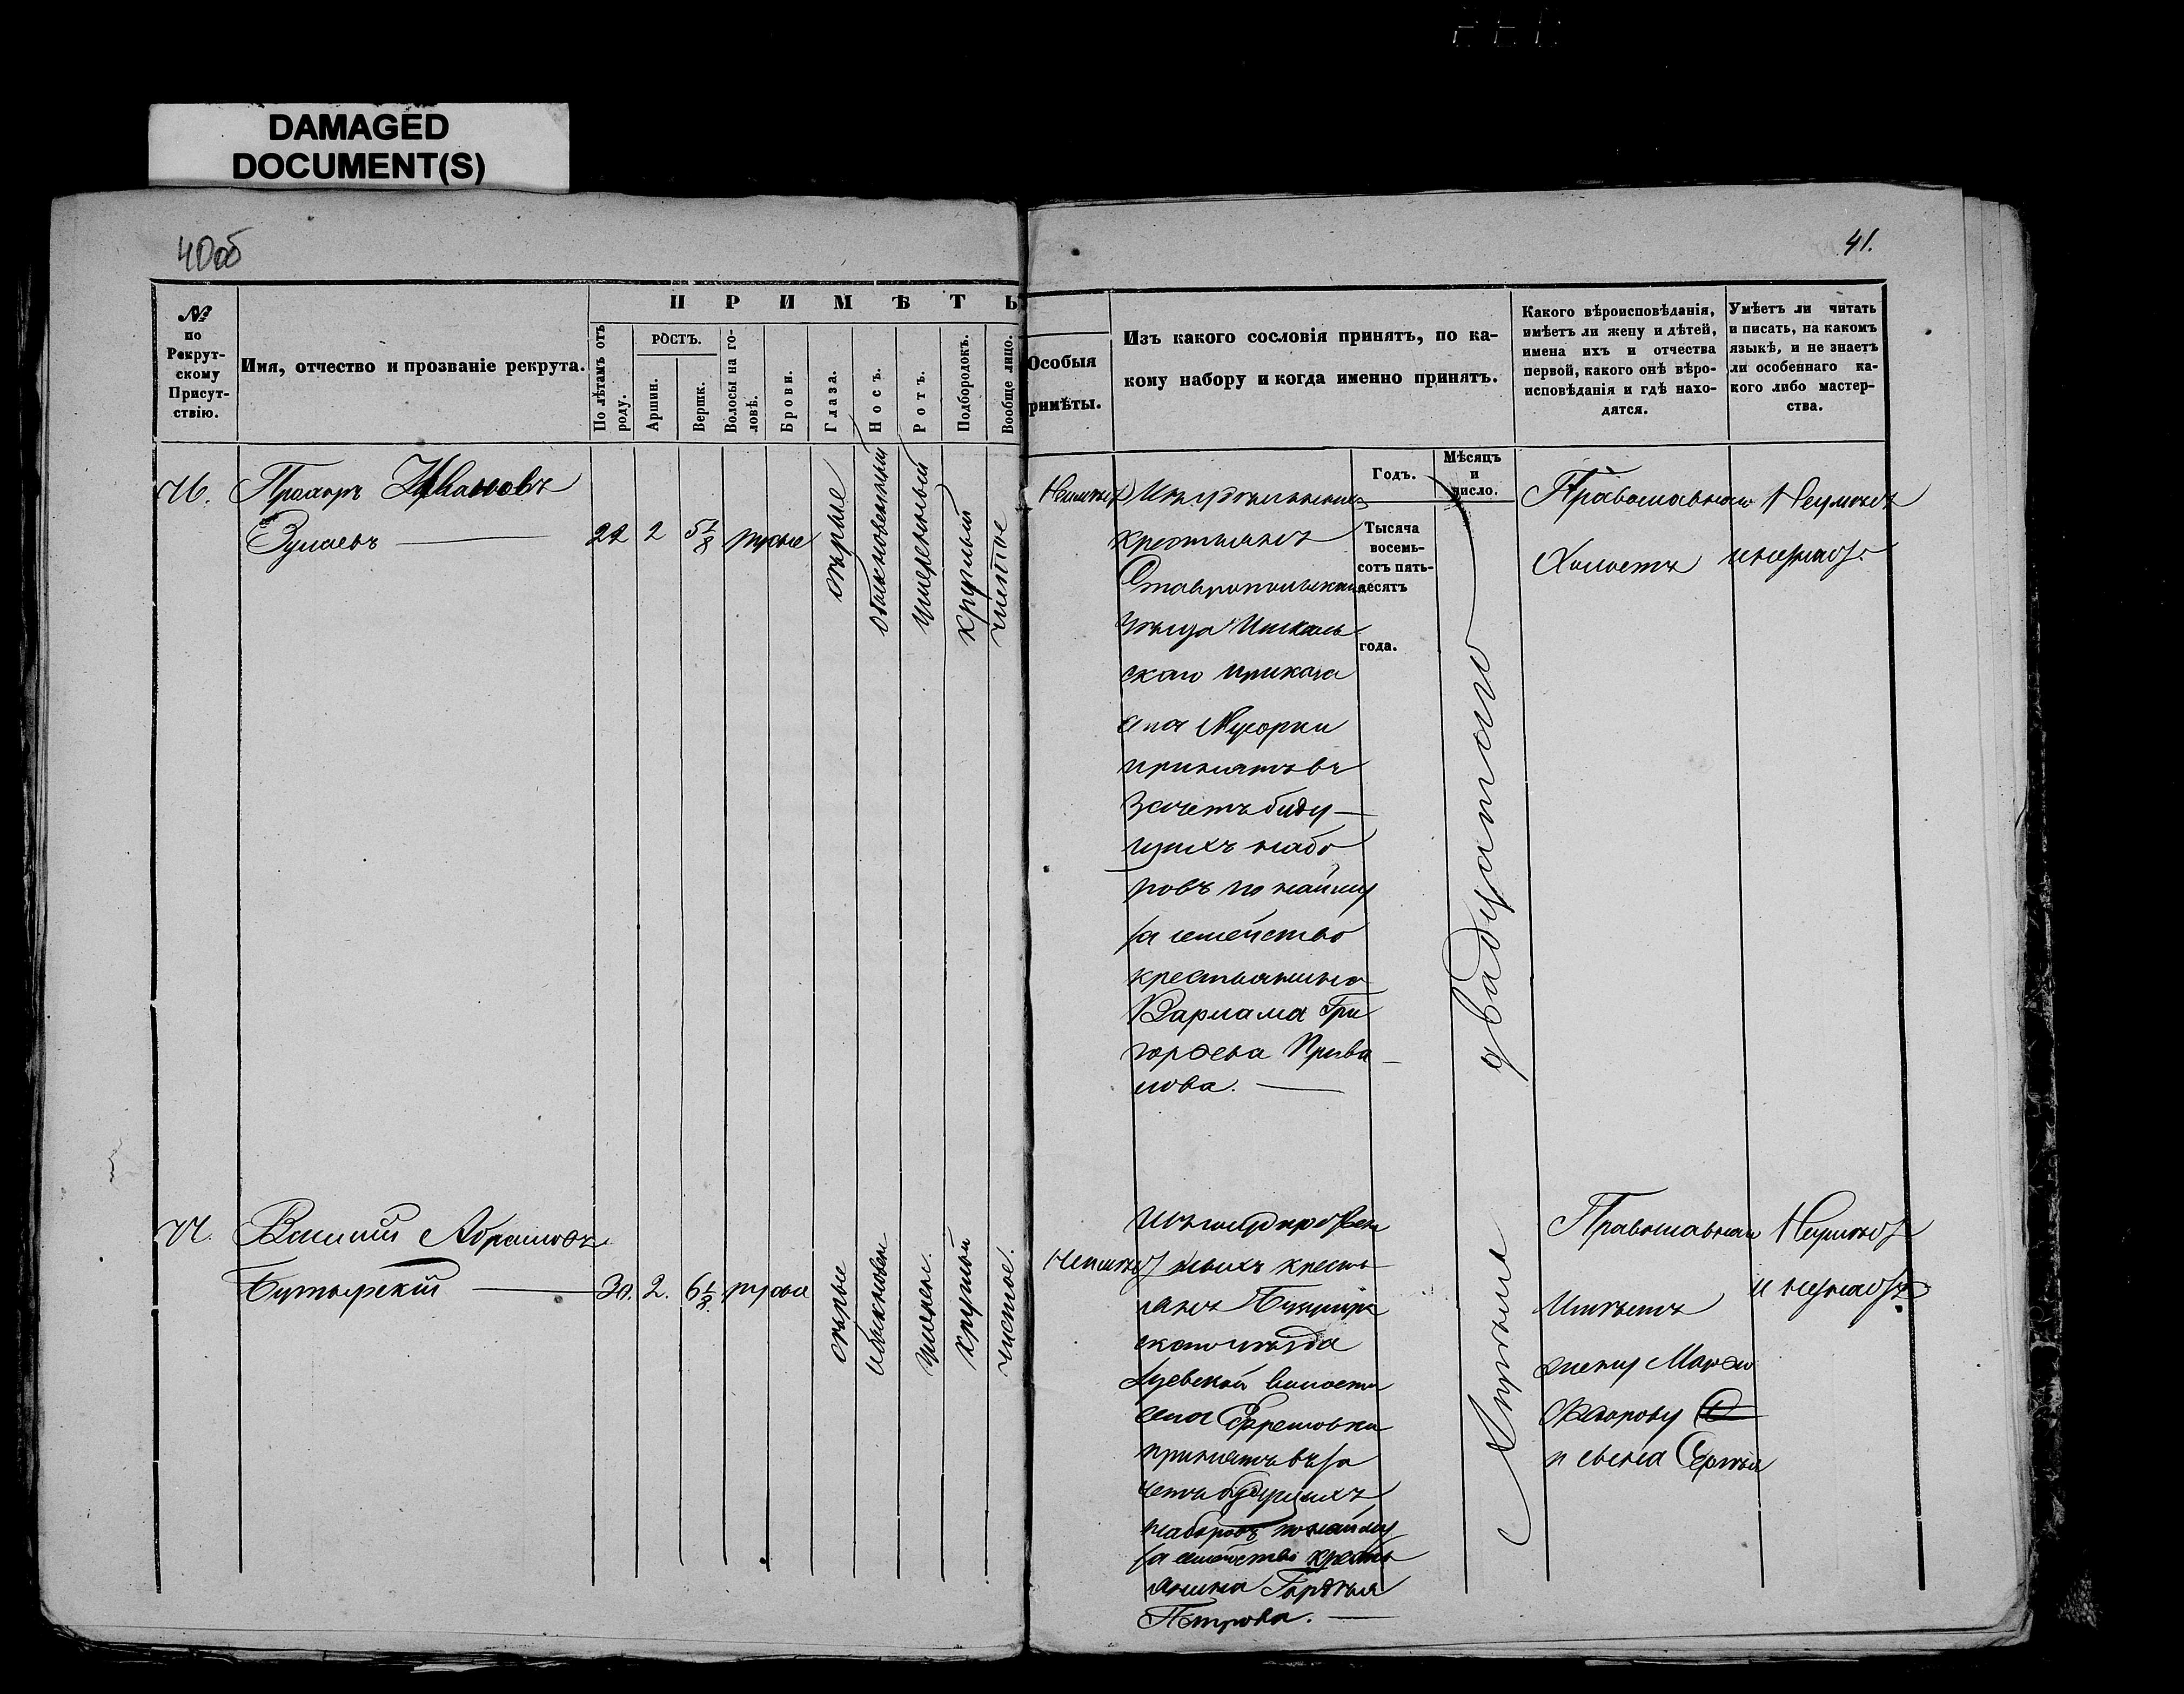 DAMAGED
DOCUMENT(S)
40об
41.
№
по
Рекрут-
скому
Присут-
ствію.
Имя, отчество и прозваніе рекрута.
П Р И М Ѣ Т Ы
По лѣтамъ отъ
роду.
РОСТЪ.
Аршин.
Вершк.
Волосы на го-
ловѣ.
Брови.
Глаза.
Носъ.
Ротъ.
Подбородокъ.
Вообще лицо.
Особыя
римѣты.
Изъ какого сословія принятъ, по ка-
кому набору и когда именно принятъ.
Какого вѣроисповѣданія,
имѣетъ ли жену и дѣтей,
имена ихъ и отчества
первой, какого онѣ вѣро-
исповѣданія и гдѣ нахо-
дятся.
Умѣетъ ли читать
и писать, на какомъ
языкѣ, и не знаетъ
ли особеннаго ка-
кого либо мастер-
ства.
Годъ.
Мѣсяцъ
и
число.
Тысяча
восемь-
сотъ пять-
десятъ
года.
Прохоръ Ивановъ
22 2 5 1/8 русые
сѣрые
обыкновенный
умеренный
круглый
чистое
Неимѣетъ
Изъ удѣльныхъ
крестьянъ
Ставропольскаго
уѣзда
скаго приказа
села Мусорки
принятъ въ
зачетъ буду-
щихъ набо
ровъ по найму
за семейство
крестьянина
Варлама Гри
горьева Прива
лова.
двадцатаго
Православнаго
Холостъ
Неумѣетъ
и незнаетъ
Василій Абрамовъ
Бутырскій
30. 2. 6 1/8 русые
сѣрые
обыкновен
умерен.
круглый
чистое.
Неимѣетъ
Изъ государствен
ныхъ кресть
янъ
скаго уѣзда
волости
села Ефремовки
принятъ въ за
четъ будущихъ
наборовъ по найму
за семейство кресть
янина Гордѣя
Петрова.
Апрѣля
Православнаго
Имѣетъ
жену
Федорову
и сына Сергѣя
Неумѣетъ
и незнаетъ